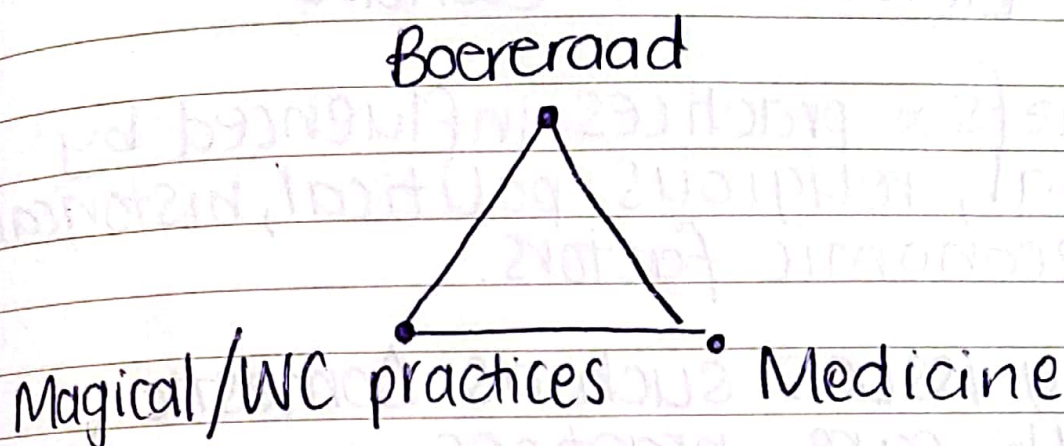 Boereraad
Magical/WC practices Medicine